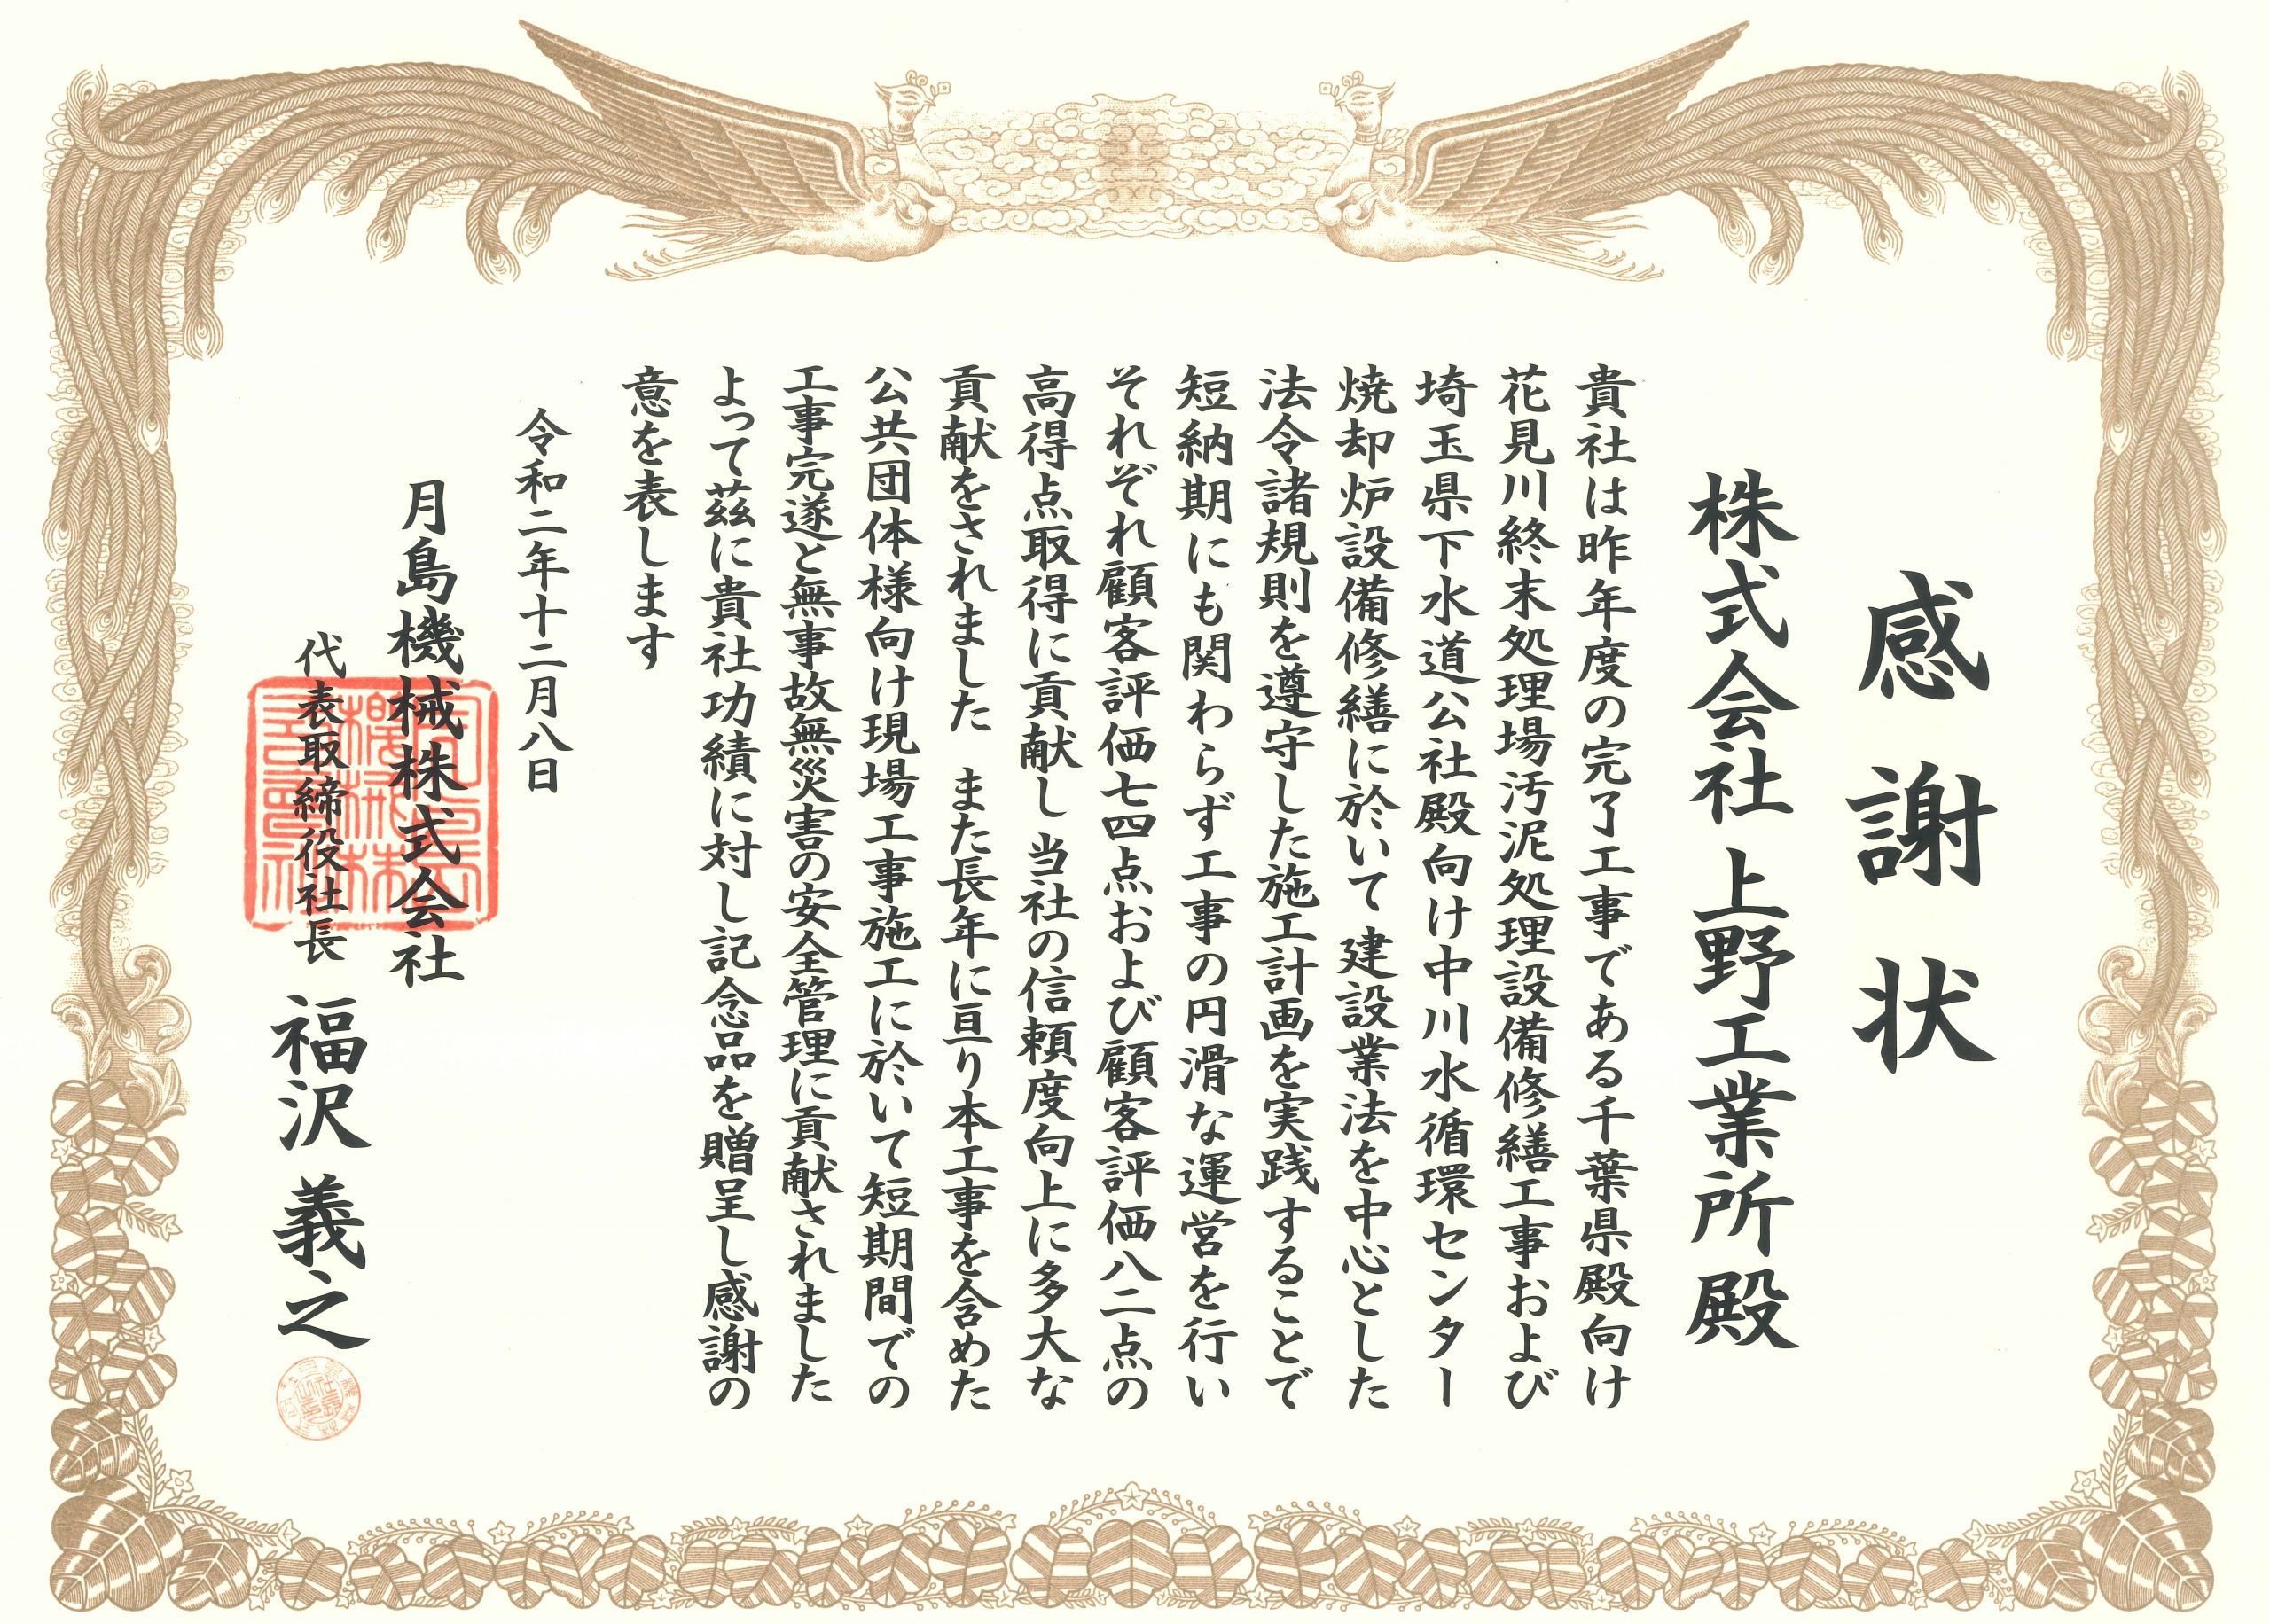 感謝状
株式会社 上野工業所 殿
貴社は昨年度の完了工事である千葉県殿向け
花見川終末処理場汚泥処理設備修繕工事および
埼玉県下水道公社殿向け中川水循環センター
焼却炉設備修繕に於いて 建設業法を中心とした
法令諸規則を遵守した施工計画を実践することで
短納期にも関わらず工事の円滑な運営を行い
それぞれ顧客評価七四点および顧客評価八二点の
高得点取得に貢献し 当社の信頼度向上に多大な
貢献をされました また長年に亘り本工事を含めた
公共団体様向け現場工事施工に於いて短期間での
工事完遂と無事故無災害の安全管理に貢献されました
よって茲に貴社功績に対し記念品を贈呈し感謝の
意を表します
令和二年十二月八日
月島機械株式会社
代表取締役社長 福沢義之